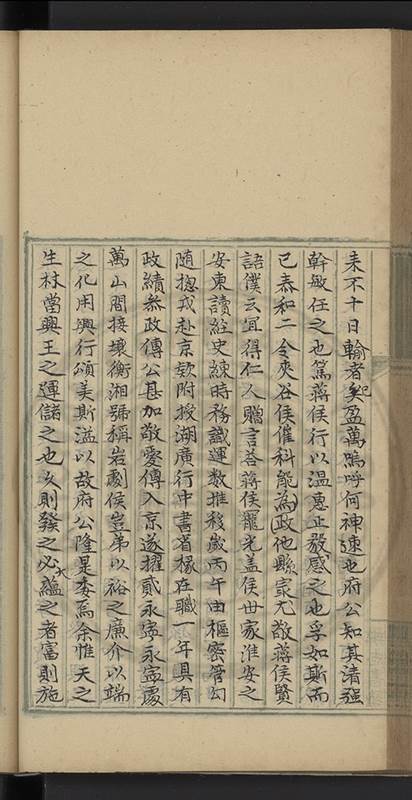 耒不十日輸者矣已盈萬嗚呼何神速也府公知其清強
幹敏任之也篤蔣侯行以溫惠正教感之也孚如斯而
已泰和二令夾谷侯催科能為政他縣家尤敬蔣侯賢
語僕云宜得仁人贈言荅蔣侯寵光盖侯世家淮安之
安東讀經史練時務識運數推移歲丙午由樞密管勾
随揔戎赴京欵附授湖廣行中書省椽在職一年具有
政績叅政傅公甚加敬愛傅入京遂擢貳永寧永寧處
萬山間接壤衡湘號稱岩劇侯豈弟以裕之廉介以端
之化用興行頌美斯溢以故府公隆是委焉余惟天之
生材當興王之運儲之也久則發之必大蘊之者富則施